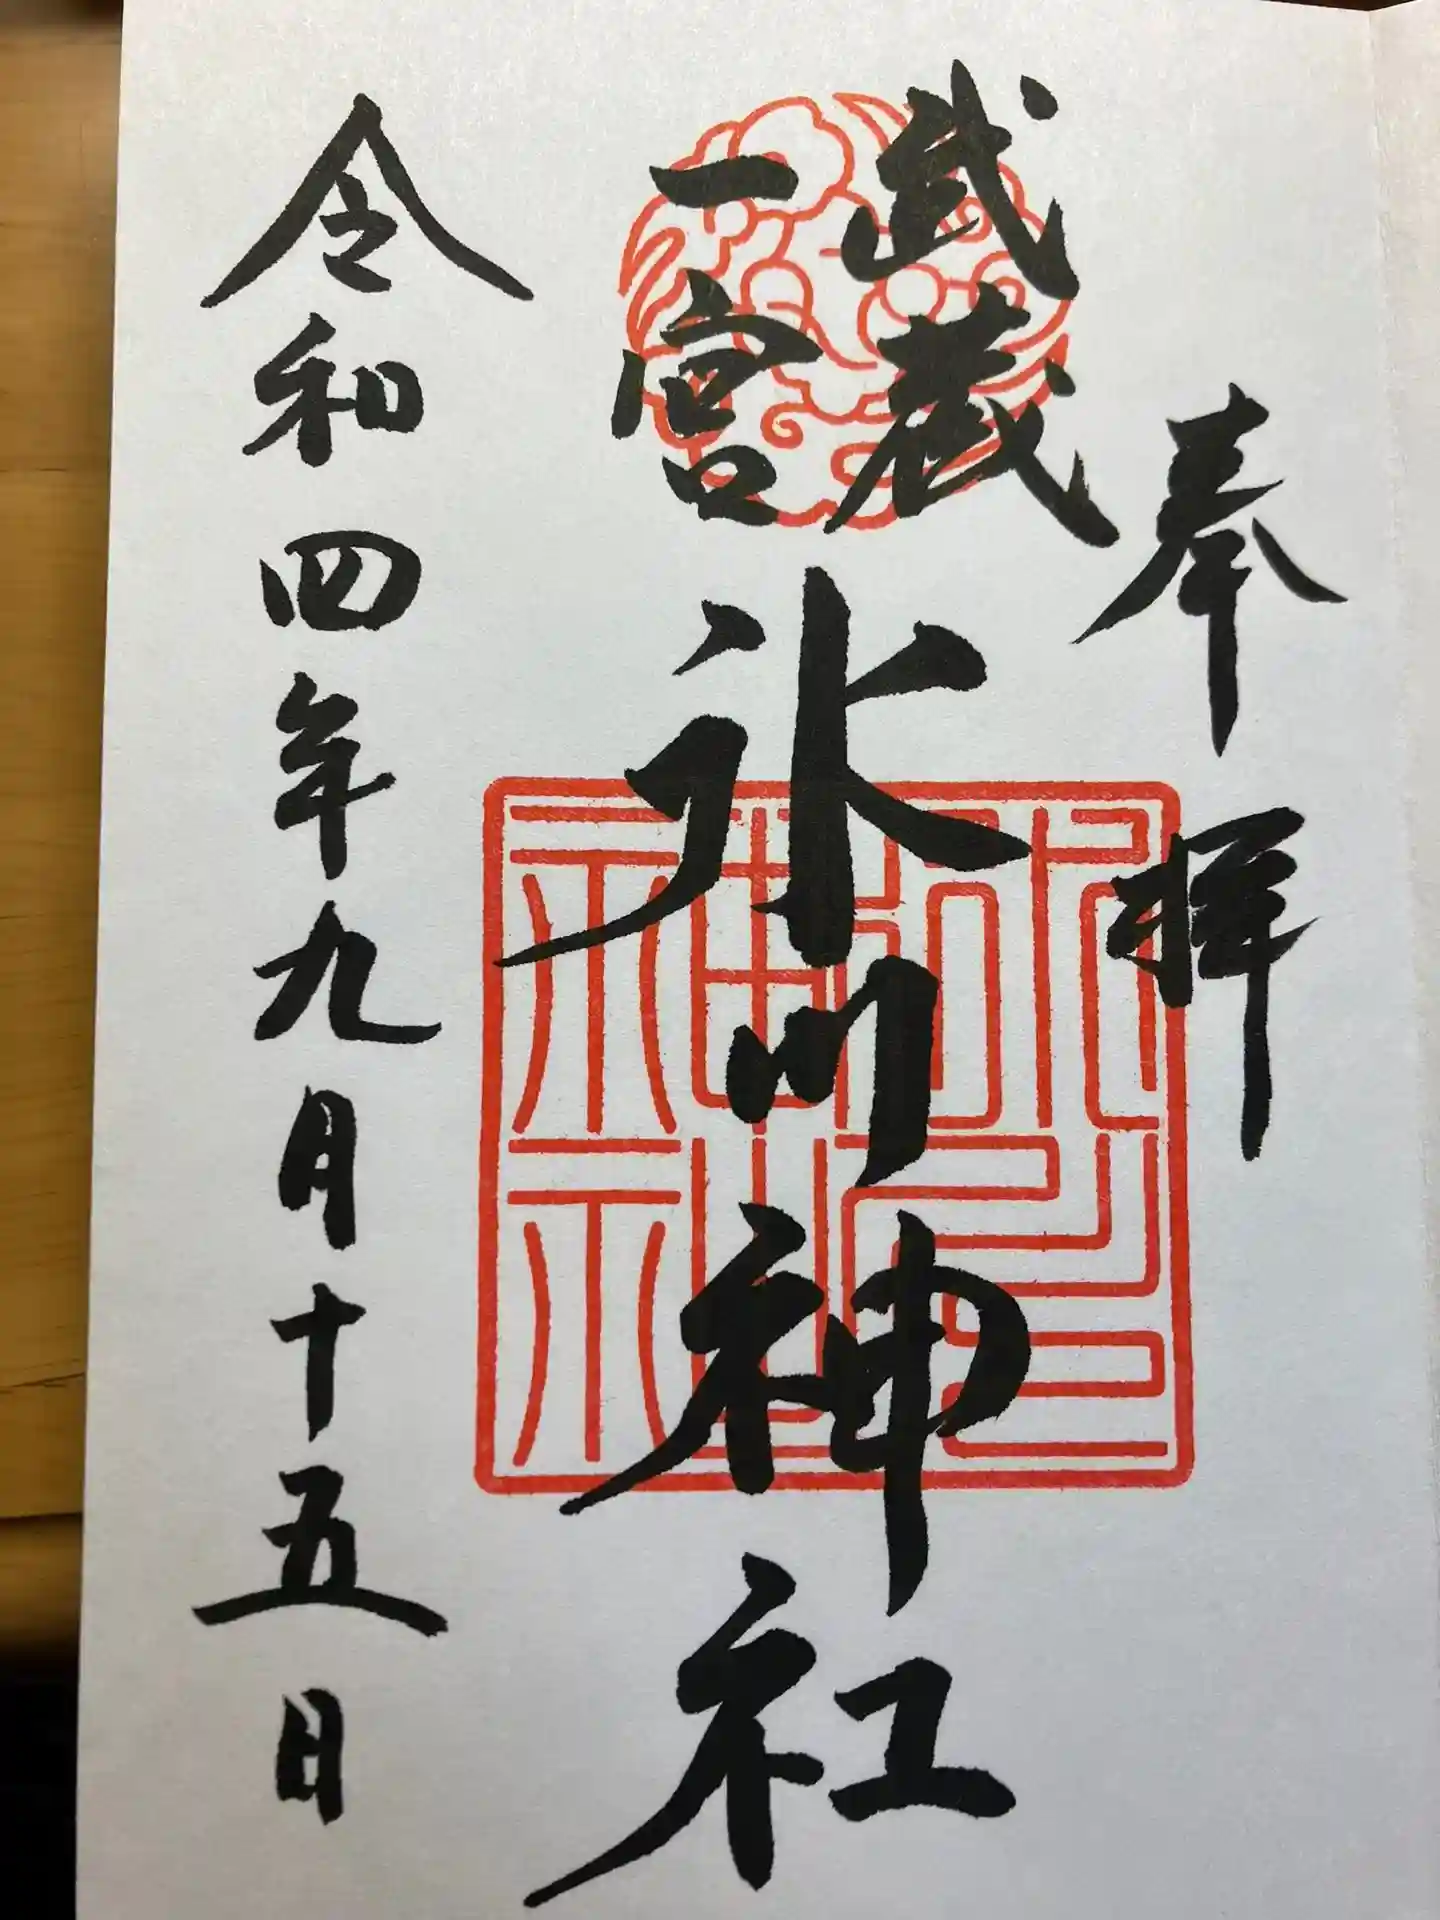 奉拝
武蔵
一宮
氷川神社
令和四年九月十五日